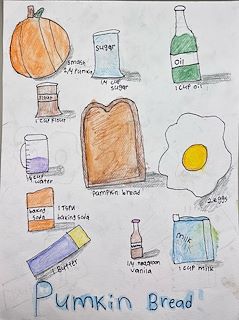 smash
1/4 Pumkin
sugar
1/4 cup
sugar
OIL
1 cup oil
flour
1 cup flour
1/4 cup
water
pampkin bread
2 eggs
baking
soda
1 TSPN
baking soda
1 Butter
1/4 teaspoon
vanila
milk
1 cup milk
Pumkin Bread